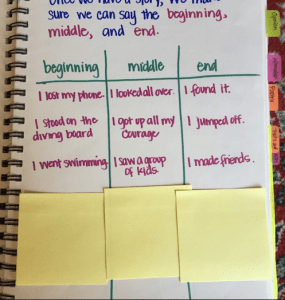 sure we can say the beginning,
middle, and end.
beginning middle end
I lost my phone. I looked all over. I found it.
I stood on the I got up all my I jumped off.
diving board courage
I went swimming. I saw a group I made friends.
of kids.